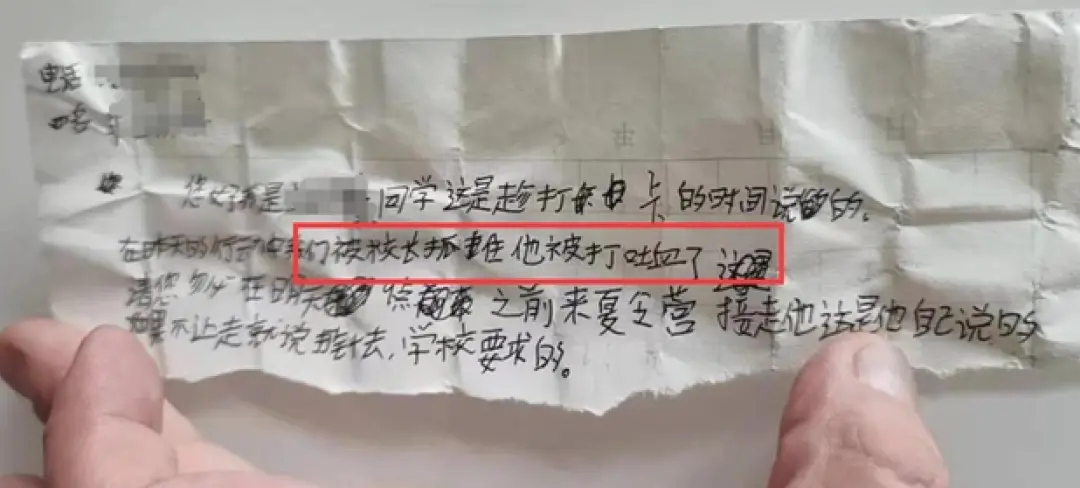 电话
您好我是 同学这是趁打卡的时间说的。
在昨天的行动中我们被校长抓住他被打吐血了
请您务必在明天 之前来夏令营接走他这是他自己说的
如果不让走就说 去,学校要求的。